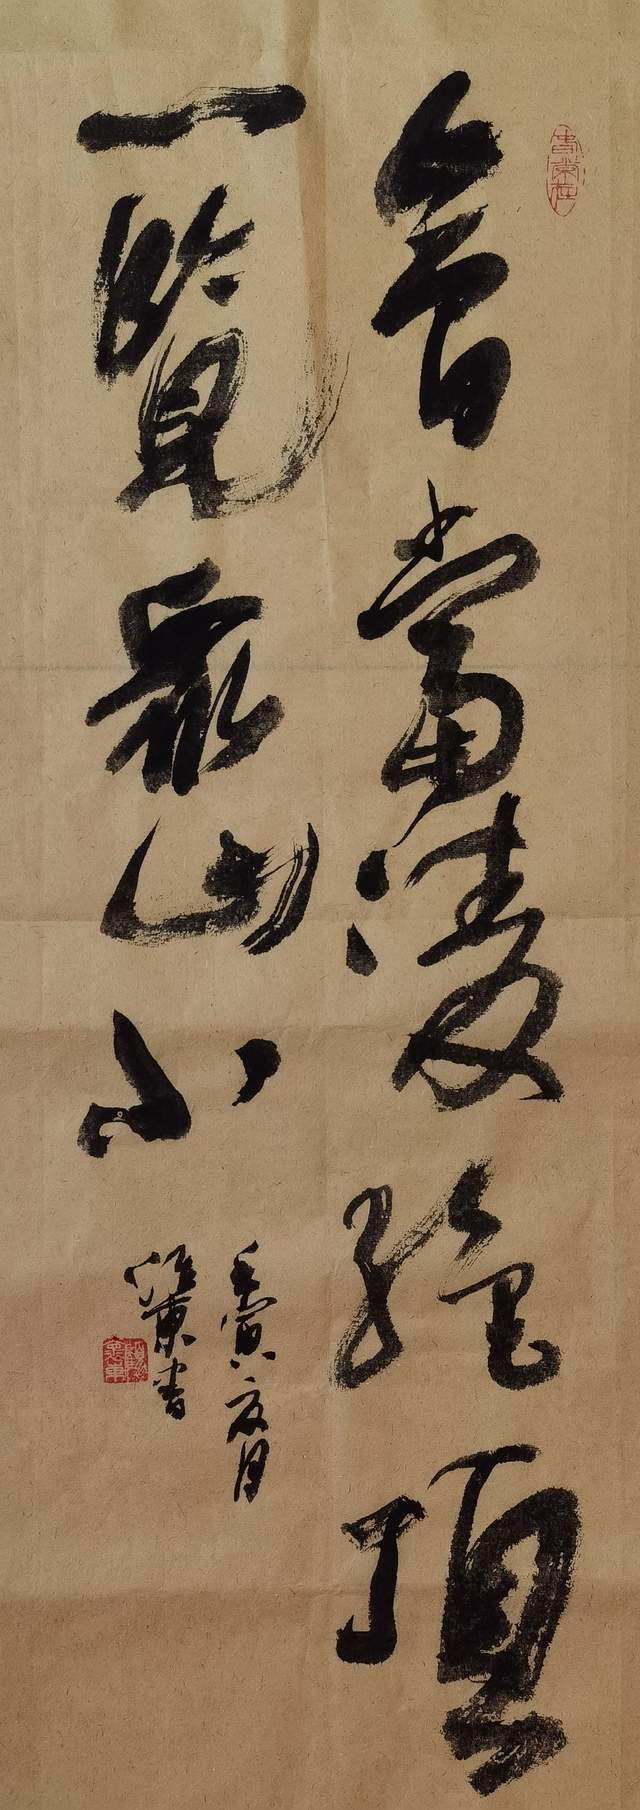 會當凌絕頂
一覽衆山小
壬寅夏月
東書